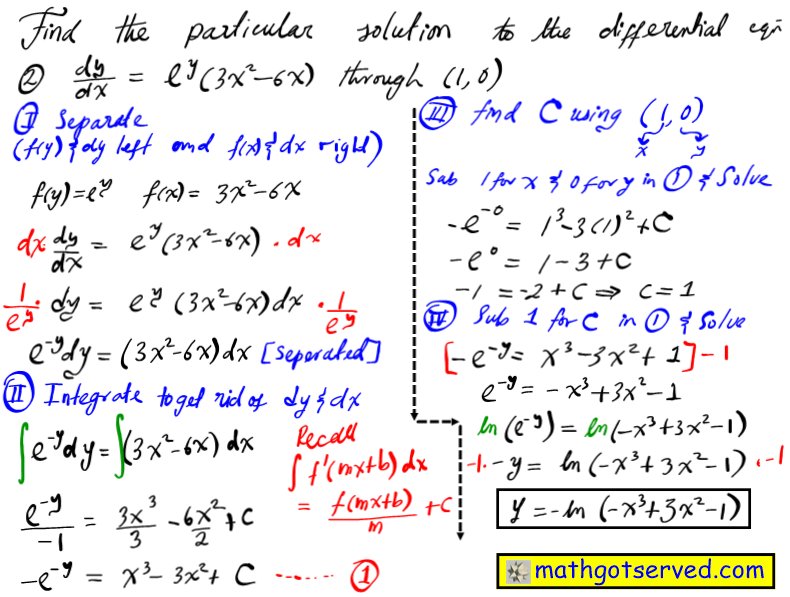 Find the particular solution to the differential eqn
② dy/dx = e^y(3x²-6x) through (1,0)
Ⅰ Separate
(f(y) & dy left and f(x) & dx right)
f(y)=e^y f(x)= 3x²-6x
dx· dy/dx = e^y(3x²-6x) · dx
1/e^y · dy = e^y (3x²-6x)dx · 1/e^y
e^-y dy = (3x²-6x)dx [Seperated]
Ⅱ Integrate to get rid of dy & dx
∫e^-y dy = ∫(3x²-6x) dx
e^-y/-1 = 3x³/3 - 6x²/2 + C
Recall
∫ f'(mx+b) dx
= f(mx+b)/m + C
-e^-y = x³-3x²+ C ------- ①
Ⅲ find C using (1,0)
x y
Sub 1 for x & 0 for y in ① & Solve
-e^-0 = 1³-3(1)²+C
-e^0 = 1-3+C
-1 = -2+C ⇒ C=1
Ⅳ Sub 1 for C in ① & Solve
[-e^-y = x³-3x²+1]-1
e^-y = -x³+3x²-1
ln(e^-y) = ln(-x³+3x²-1)
-1· -y = ln(-x³+3x²-1) ·-1
y = -ln (-x³+3x²-1)
mathgotserved.com